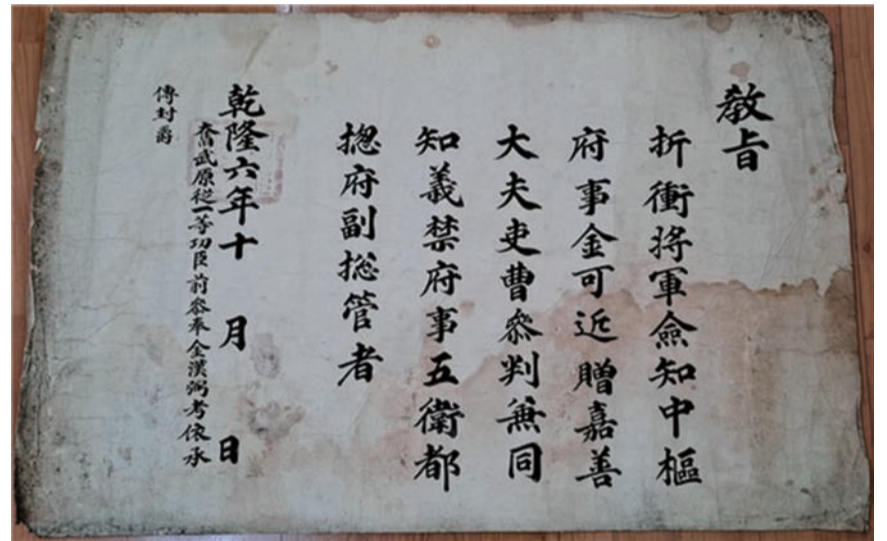 敎旨
折衝將軍僉知中樞
府事金可近贈嘉善
大夫吏曹叅判兼同
知義禁府事五衛都
摠府副摠管者
乾隆六年十 月 日
奮武原從一等功臣前參奉金漢弼考依承
傳封爵